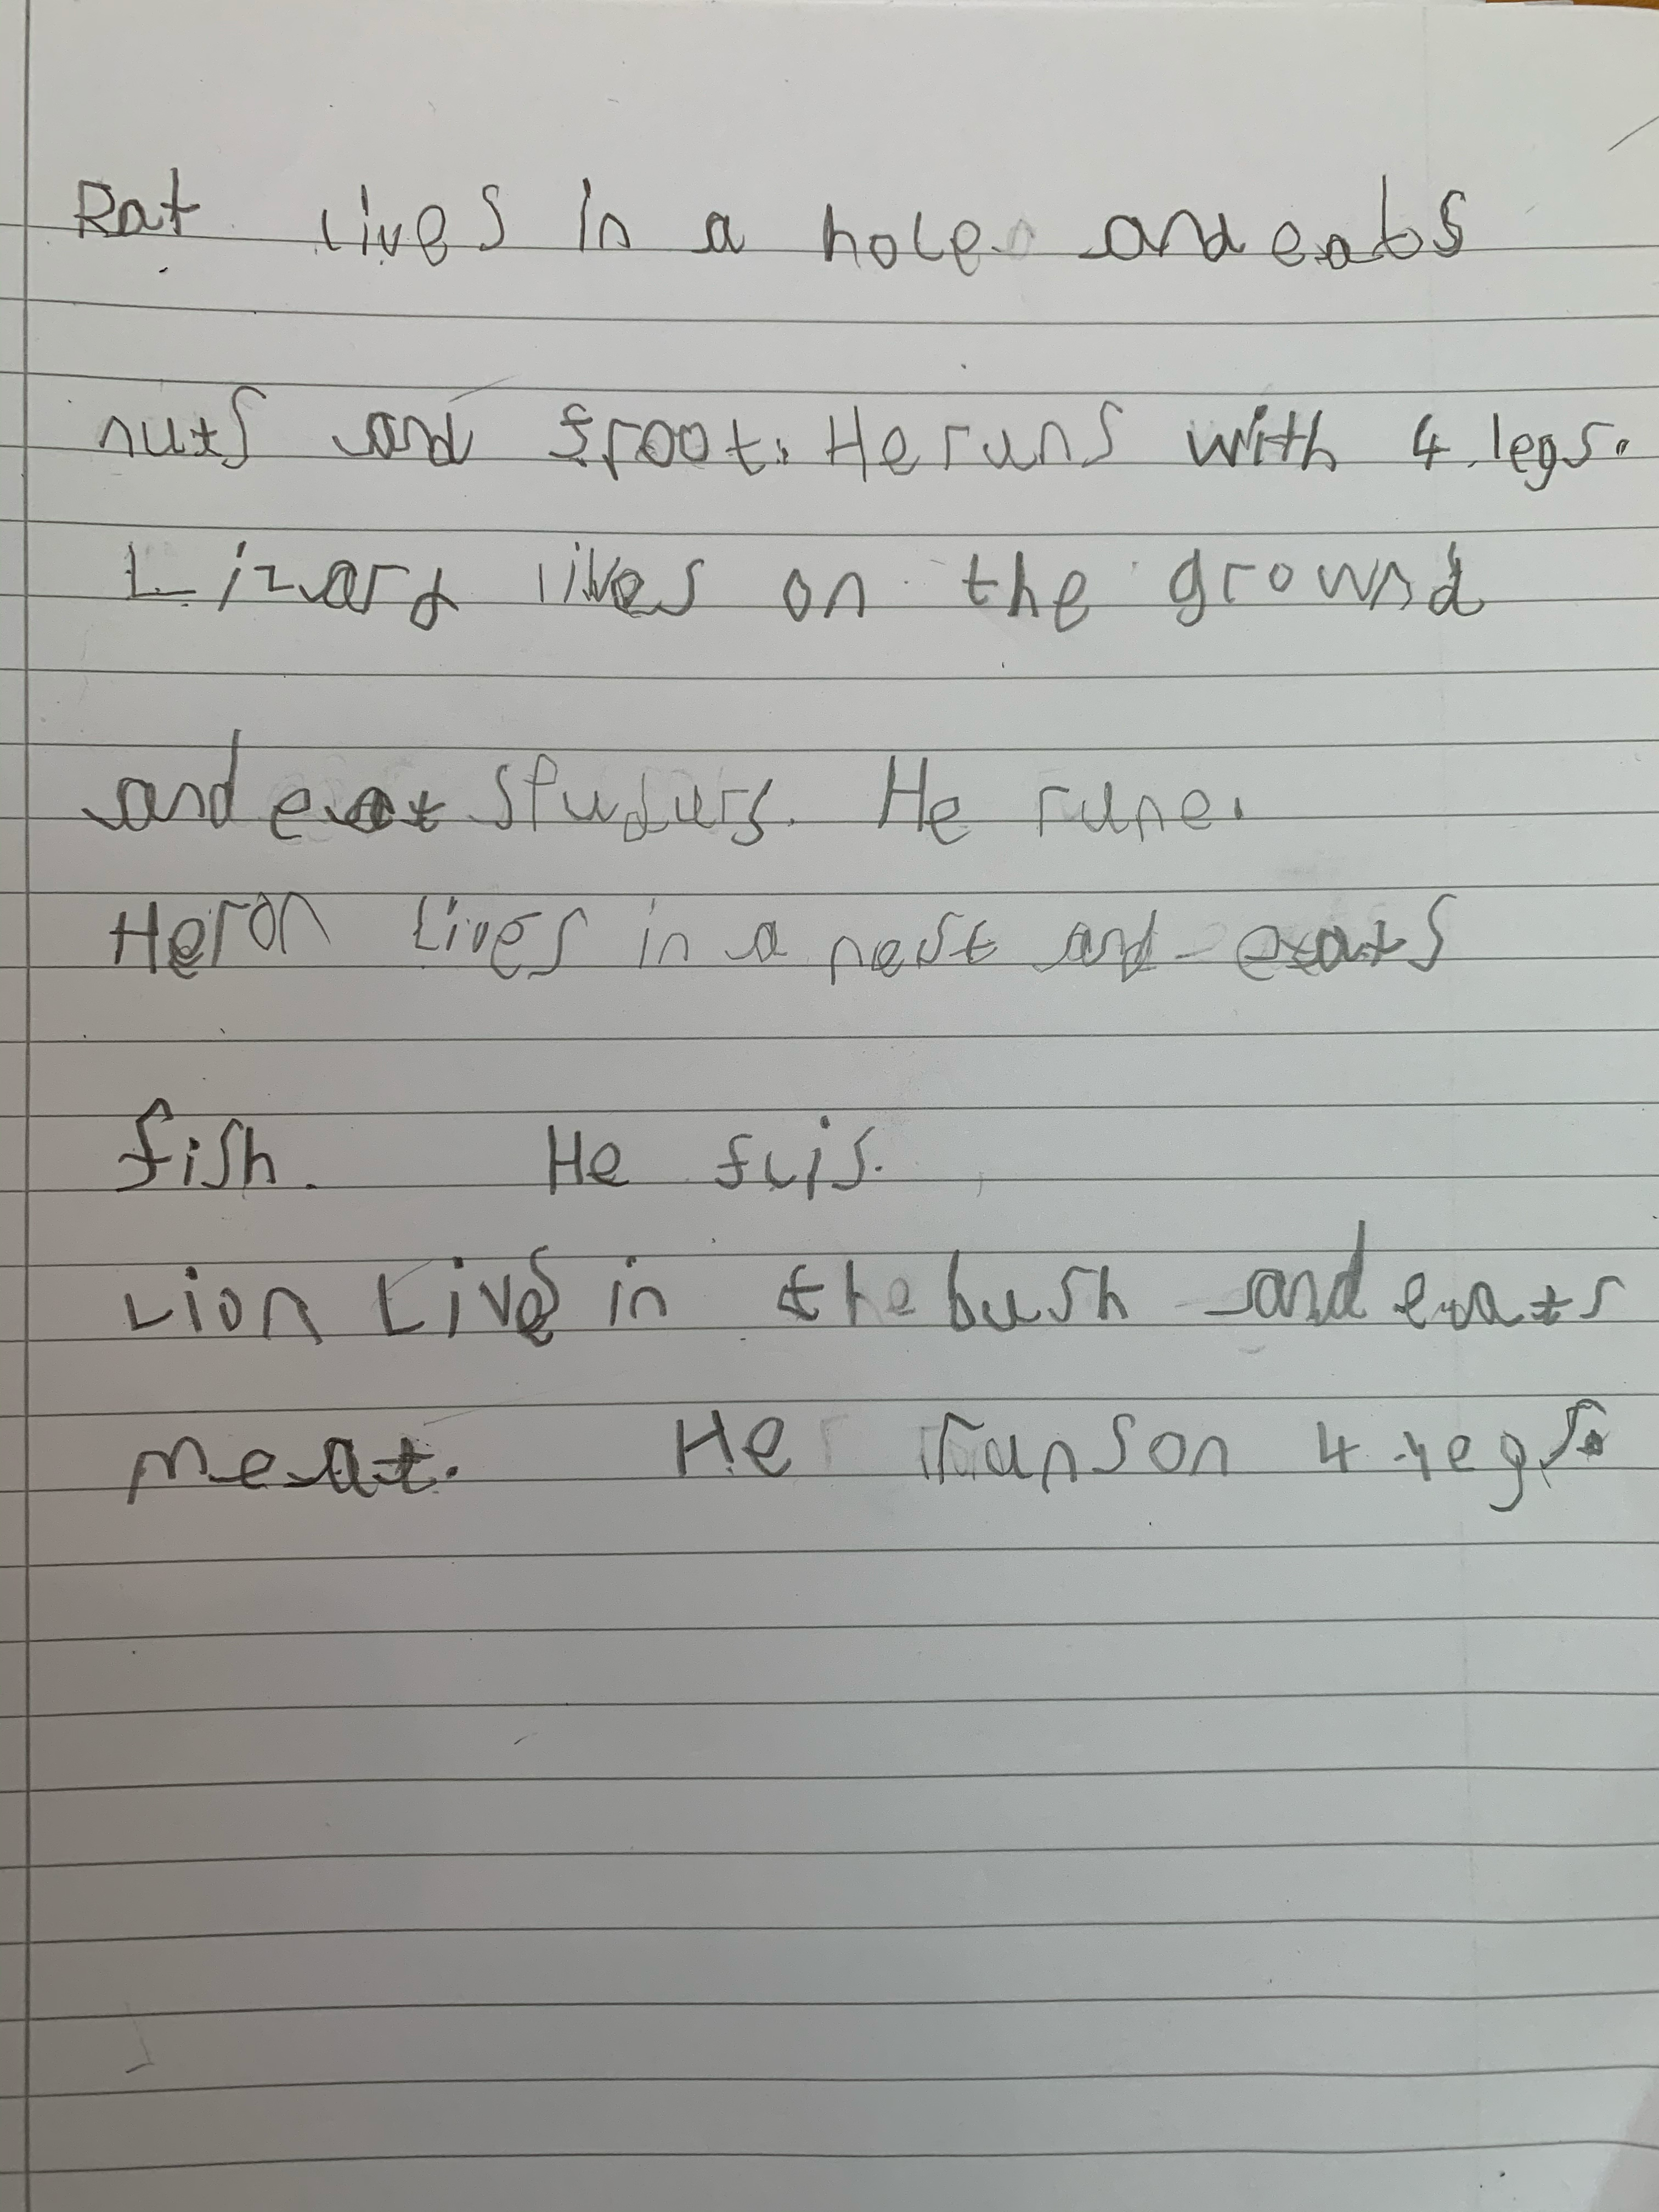 Rat lives in a hole and eats
nuts and froot. He runs with 4 legs.
Lizard lives on the grownd
and eat spudurs. He rune.
Heron lives in a nest and eats
fish. He flis.
Lion Lives in the bush and eats
meat. He runs on 4 legs.